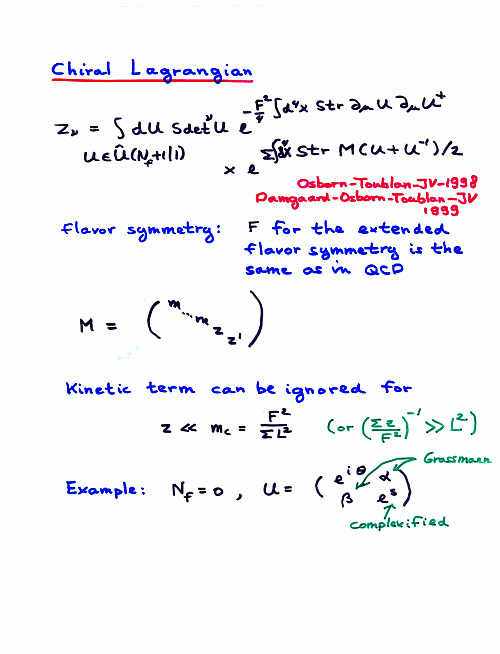 Chiral Lagrangian
Z_ν = ∫ dU Sdet^ν U e^{-F²/4 ∫d⁴x Str ∂_μ U ∂_μ U⁺}
U∈Û(N_f+1|1)
× e^{Σ∫d⁴x Str M(U+U⁻¹)/2}
Osborn-Toublan-JV-1998
Damgaard-Osborn-Toublan-JV
1999
Flavor symmetry: F for the extended
flavor symmetry is the
same as in QCD
M = ( m ... m z z' )
Kinetic term can be ignored for
z ≪ m_c = F²/ΣL² (or (Σz/F²)⁻¹ ≫ L²)
Grassmann
Example: N_f=0, U = ( e^{iθ} α
β e^s )
complexified